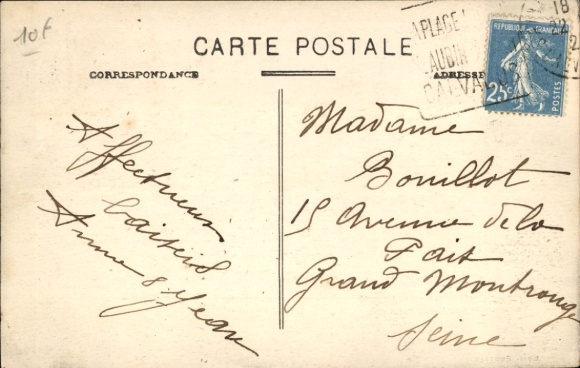 10f
CARTE POSTALE
CORRESPONDANCE
ADRESSE
A PLAGE
AUBIN
CALVADOS
18
22
REPUBLIQUE FRANCAISE
25c
POSTES
Affectueux
baisers
Anne & Jean
Madame
Bouillot
15 Avenue de la
Paix
Grand Montrouge
Seine